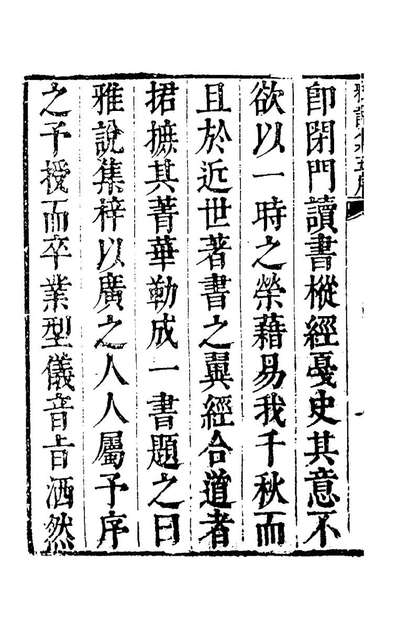 卽閉門讀書樅經戞史其意不
欲以一時之榮藉易我千秋而
且於近世著書之翼經合道者
捃摭其菁華勒成一書題之曰
雅說集梓以廣之人人屬予序
之予授而卒業型儀音旨洒然